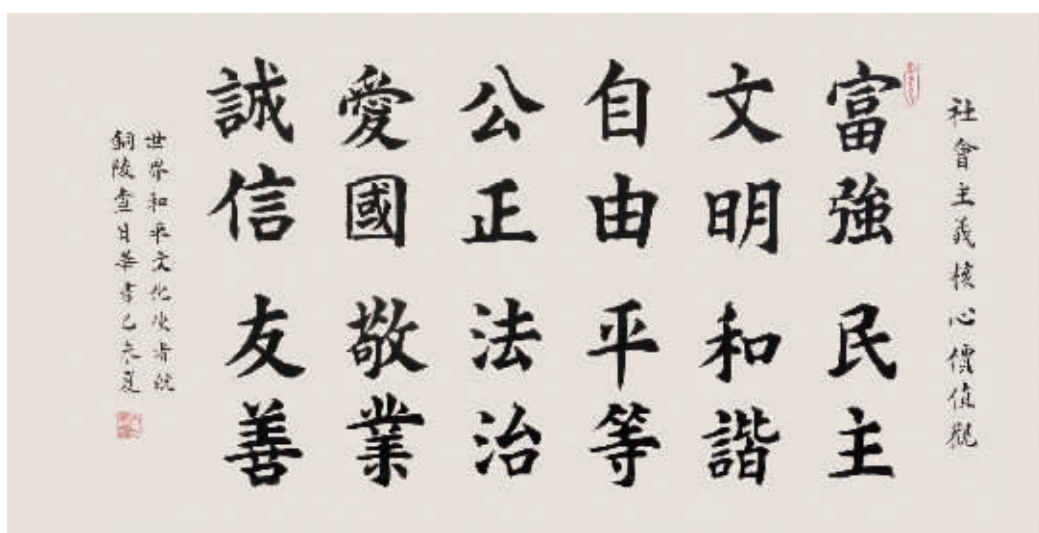 社會主義核心價值觀
富強 民主
文明 和諧
自由 平等
公正 法治
愛國 敬業
誠信 友善
世界和平文化使者
銅陵查日華書己亥夏